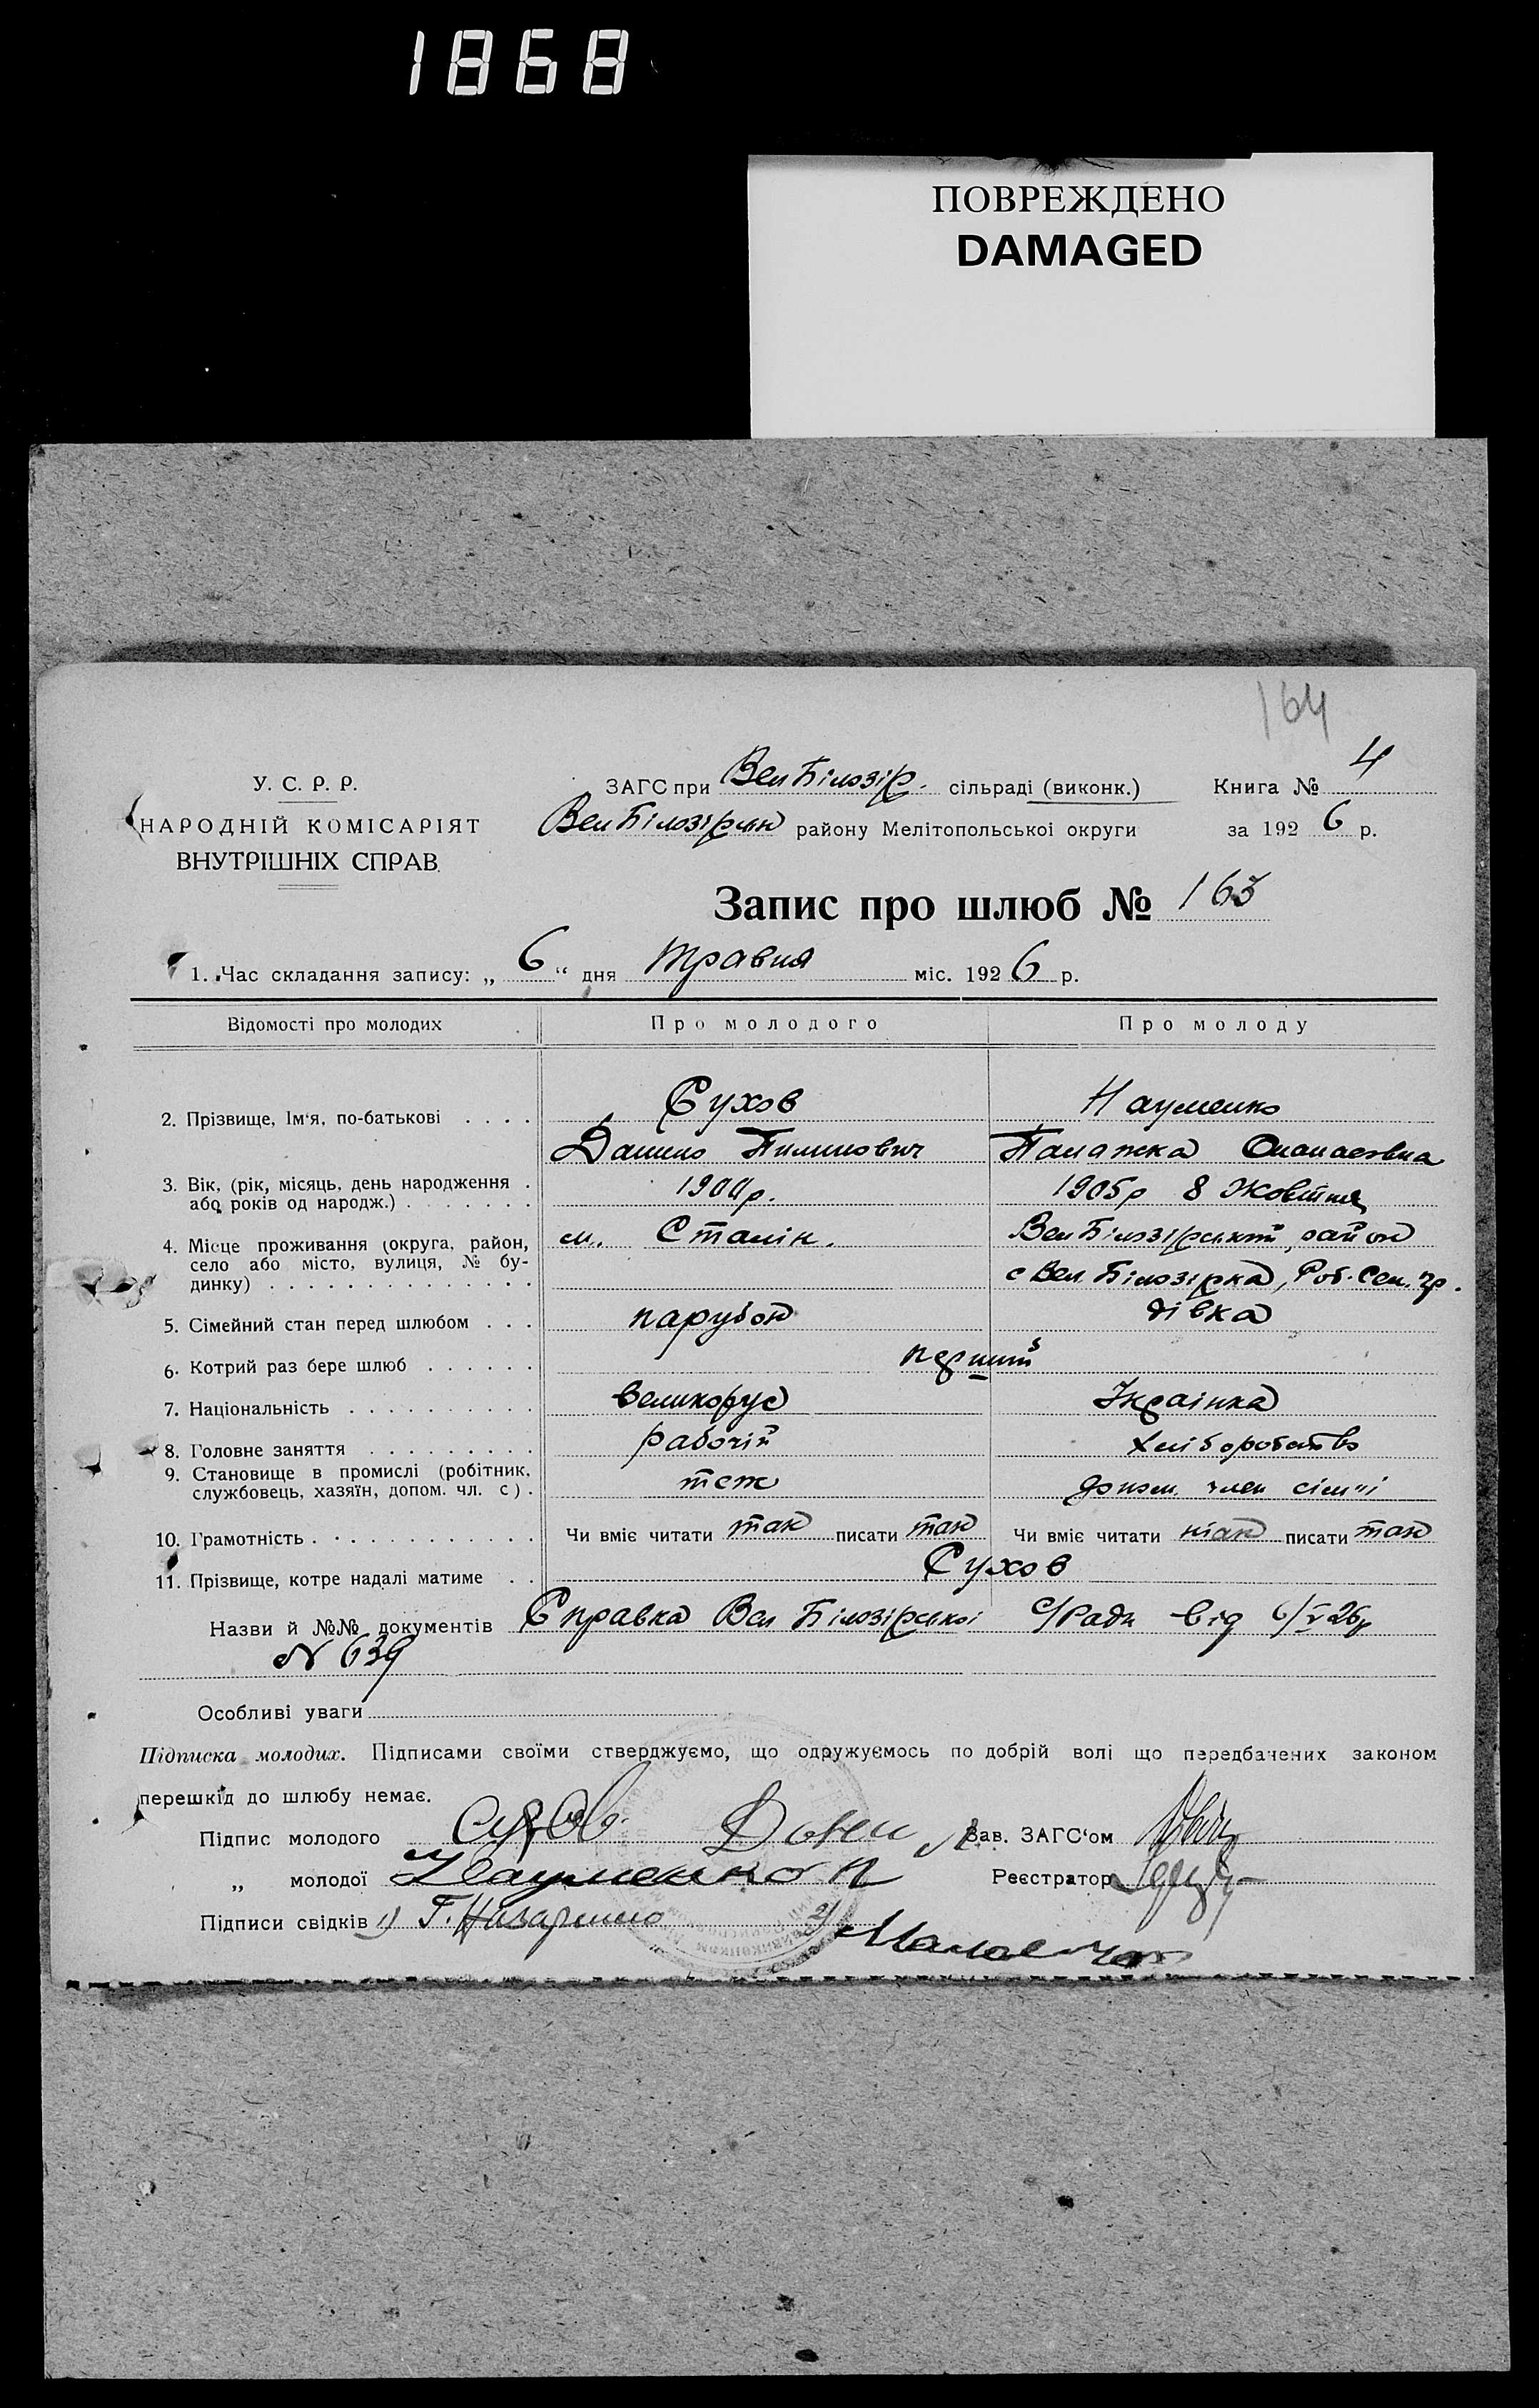 1868
ПОВРЕЖДЕНО
DAMAGED
164
У. С. Р. Р.
НАРОДНІЙ КОМІСАРІЯТ
ВНУТРІШНІХ СПРАВ.
ЗАГС при Вел Білозір. сільраді (виконк.) Книга № 4
Вел Білозірськ району Мелітопольської округи за 1926 р.
Запис про шлюб № 163
1. Час складання запису: „6“ дня травня міс. 1926 р.
Відомості про молодих Про молодого Про молоду
2. Прізвище, Ім'я, по-батькові . . . . Сухов Науменко
Данило Пилипович Палажка Опанасовна
3. Вік, (рік, місяць, день народження . 1900р. 1905р 8 Жовтня
або років од народж.) . . . . . . .
4. Місце проживання (округа, район, м. Сталін. Вел Білозірський район
село або місто, вулиця, № бу- с Вел. Білозірка, Роб. Сел. гр.
динку) . . . . . . . . . . . . . .
5. Сімейний стан перед шлюбом . . . парубок дівка
6. Котрий раз бере шлюб . . . . . . перший
7. Національність . . . . . . . . . . великорус Українка
8. Головне заняття . . . . . . . . . рабочій хліборобство
9. Становище в промислі (робітник, теж допом. член сім"і
службовець, хазяїн, допом. чл. с) .
10. Грамотність . . . . . . . . . . . Чи вміє читати так писати так Чи вміє читати так писати так
11. Прізвище, котре надалі матиме . . Сухов
Назви й №№ документів Справка Вел Білозірської С/Ради від 6/V 26р
N 639
Особливі уваги
Підписка молодих. Підписами своїми стверджуємо, що одружуємось по добрій волі що передбачених законом
перешкід до шлюбу немає.
Підпис молодого Сухов Зав. ЗАГС'ом
„ молодої Науменко П Реєстратор
Підписи свідків 1) Г. Назаренко 2)